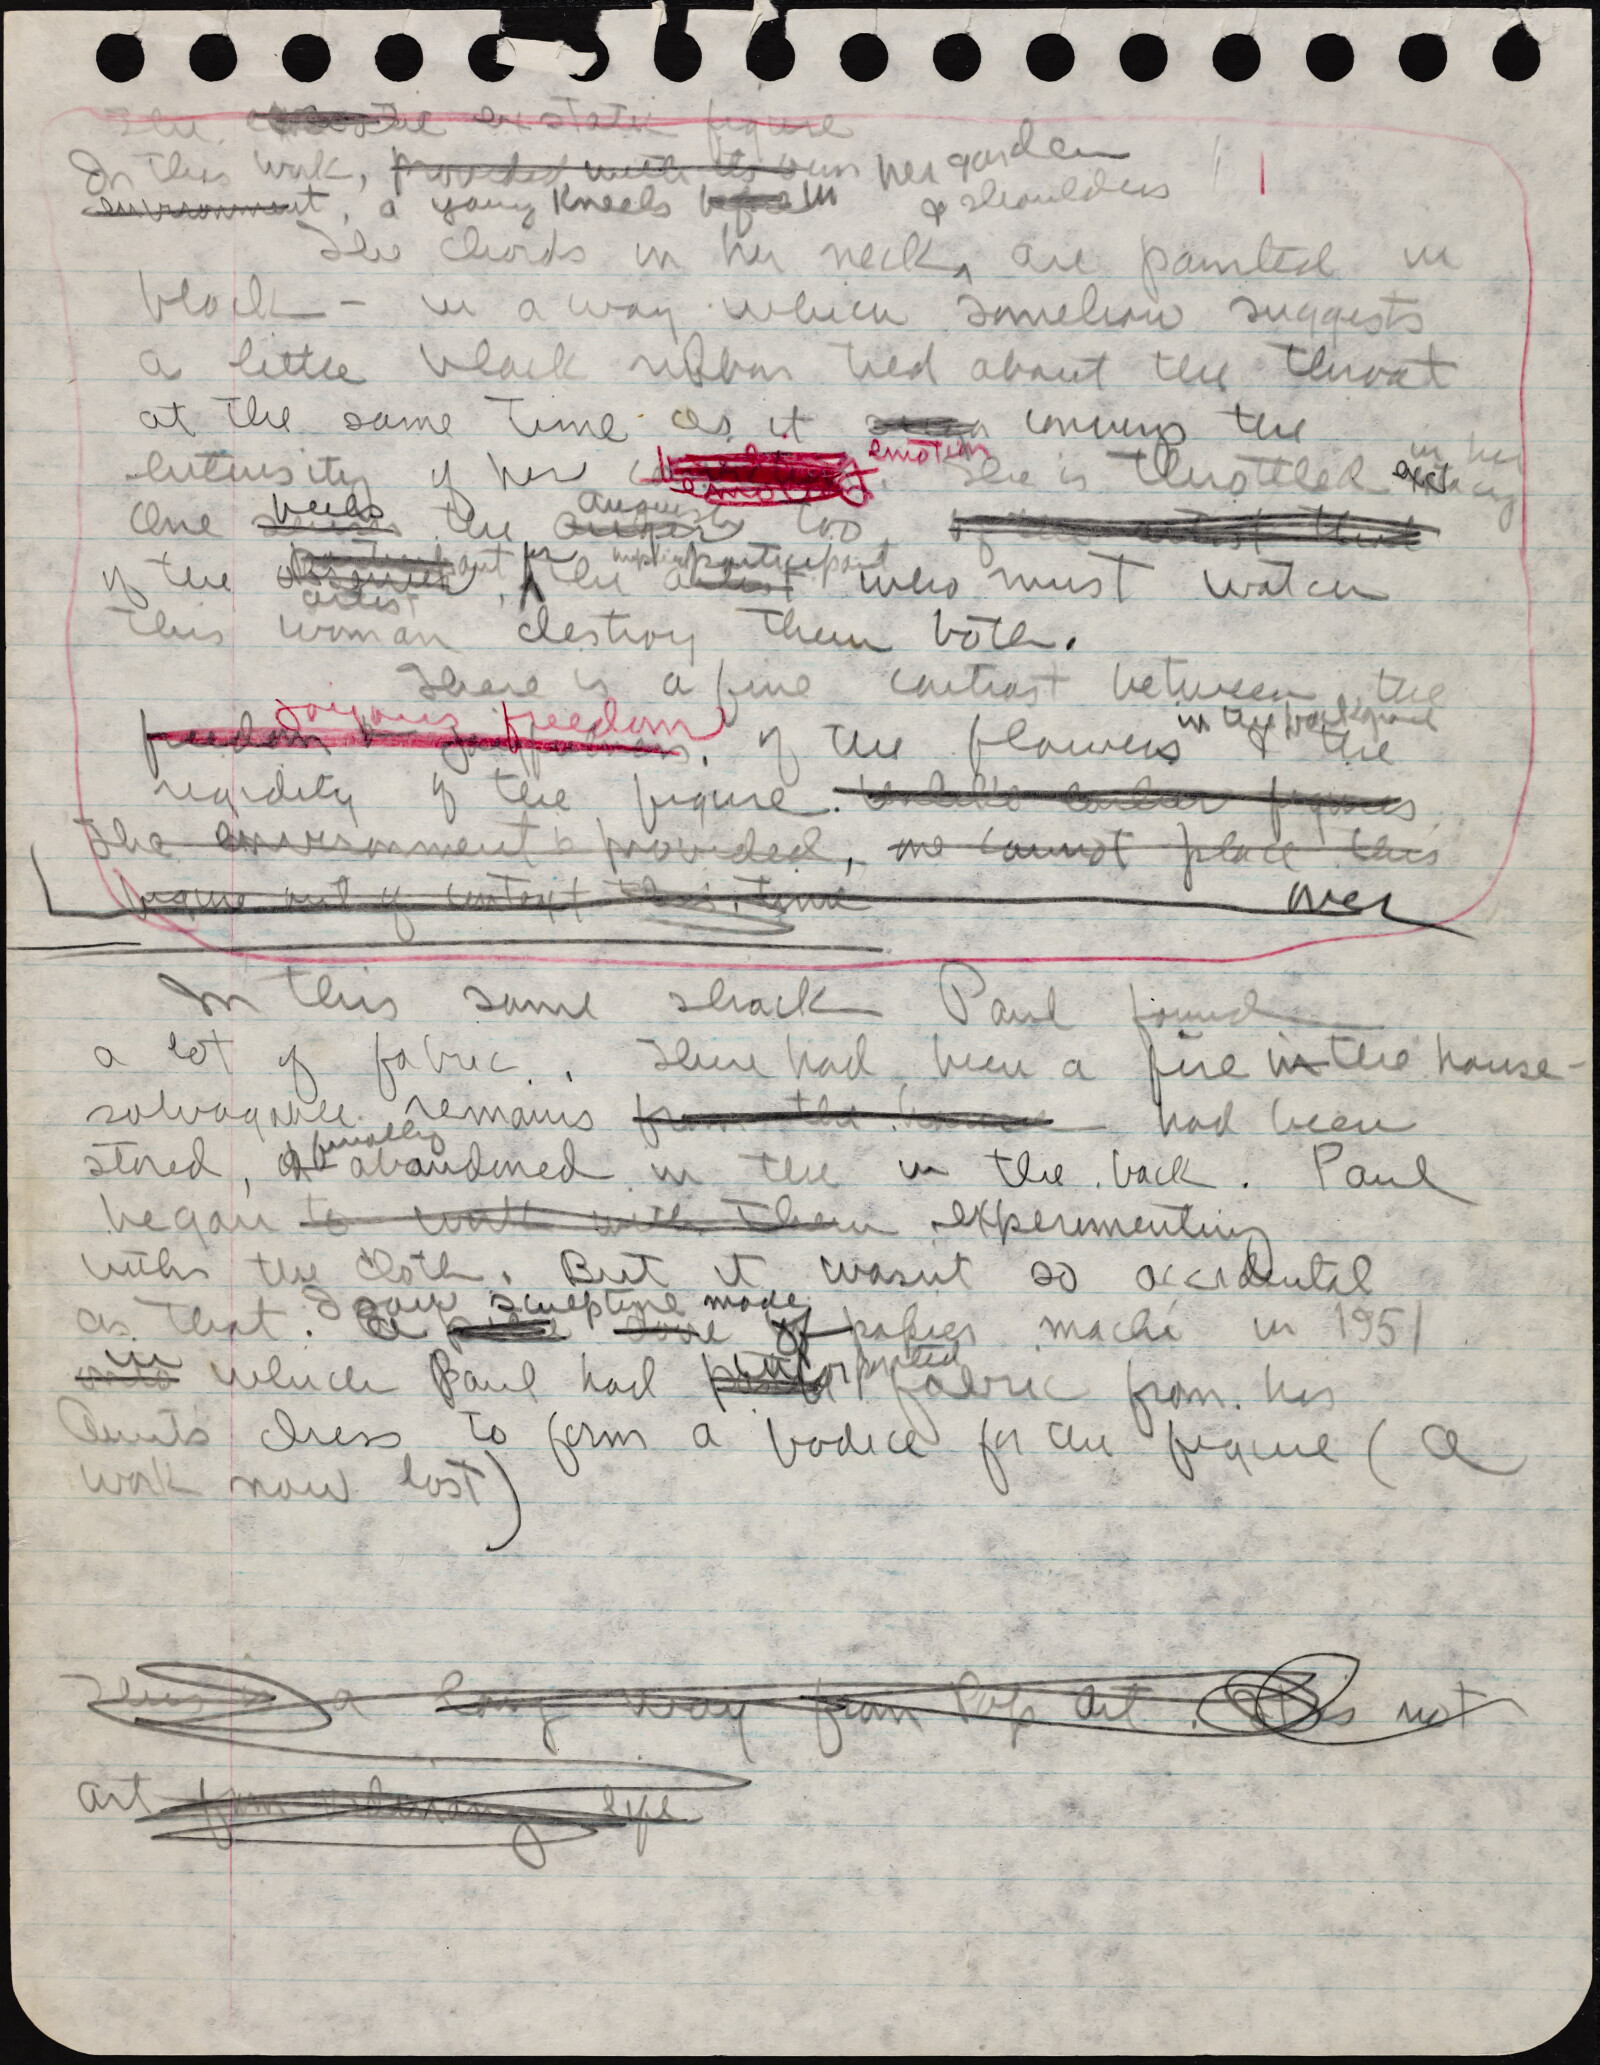 The exstatic figure
In this work, provided with its own her garden
environment, a young kneels before in & shoulders
The chords in her neck, are painted in
black - in a way which somehow suggests
a little black ribbon tied about the throat
at the same time as it conveys the
intensity of her emotion. She is throttled in her
extacy
One feels the anguish too, of the artist
of the participant, the participant who must watch
artist
this woman destroy them both.
There is a fine contrast between the
joyous freedom
freedom & joyfulness, of the flowers in the background & the
regidity of the figure. Unlike earlier figures
The environment provided, one cannot place this
figure out of context this time over
In this same shack Paul found
a lot of fabric. There had been a fire in the house -
salvagable remains from the house had been
stored, & finally abandoned in the in the back. Paul
began to work with them experimenting
with the cloth. But it wasnt so accidental
as that. I saw sculpture made of papier maché in 1951
in which Paul had incorporated fabric from his
Aunts dress to form a bodice for the figure (a
work now lost)
This is a long way from Pop art. It is not
art from ordinary life